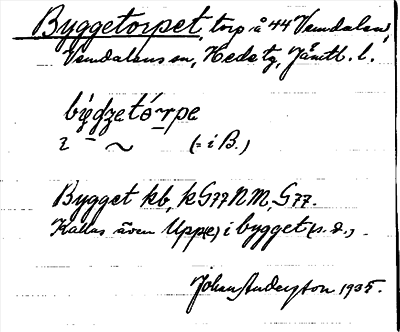 Byggetorpet, torp å 44 Vemdalen,
Vemdalens sn, Hede tg, Jämtl. l.
býdzetó́rpe
2 ~ (= i B.)
Bygget kb, k G77NM, G77.
Kallas även Uppe) i bygget (s. d.) .
Johan Anderzon 1935.